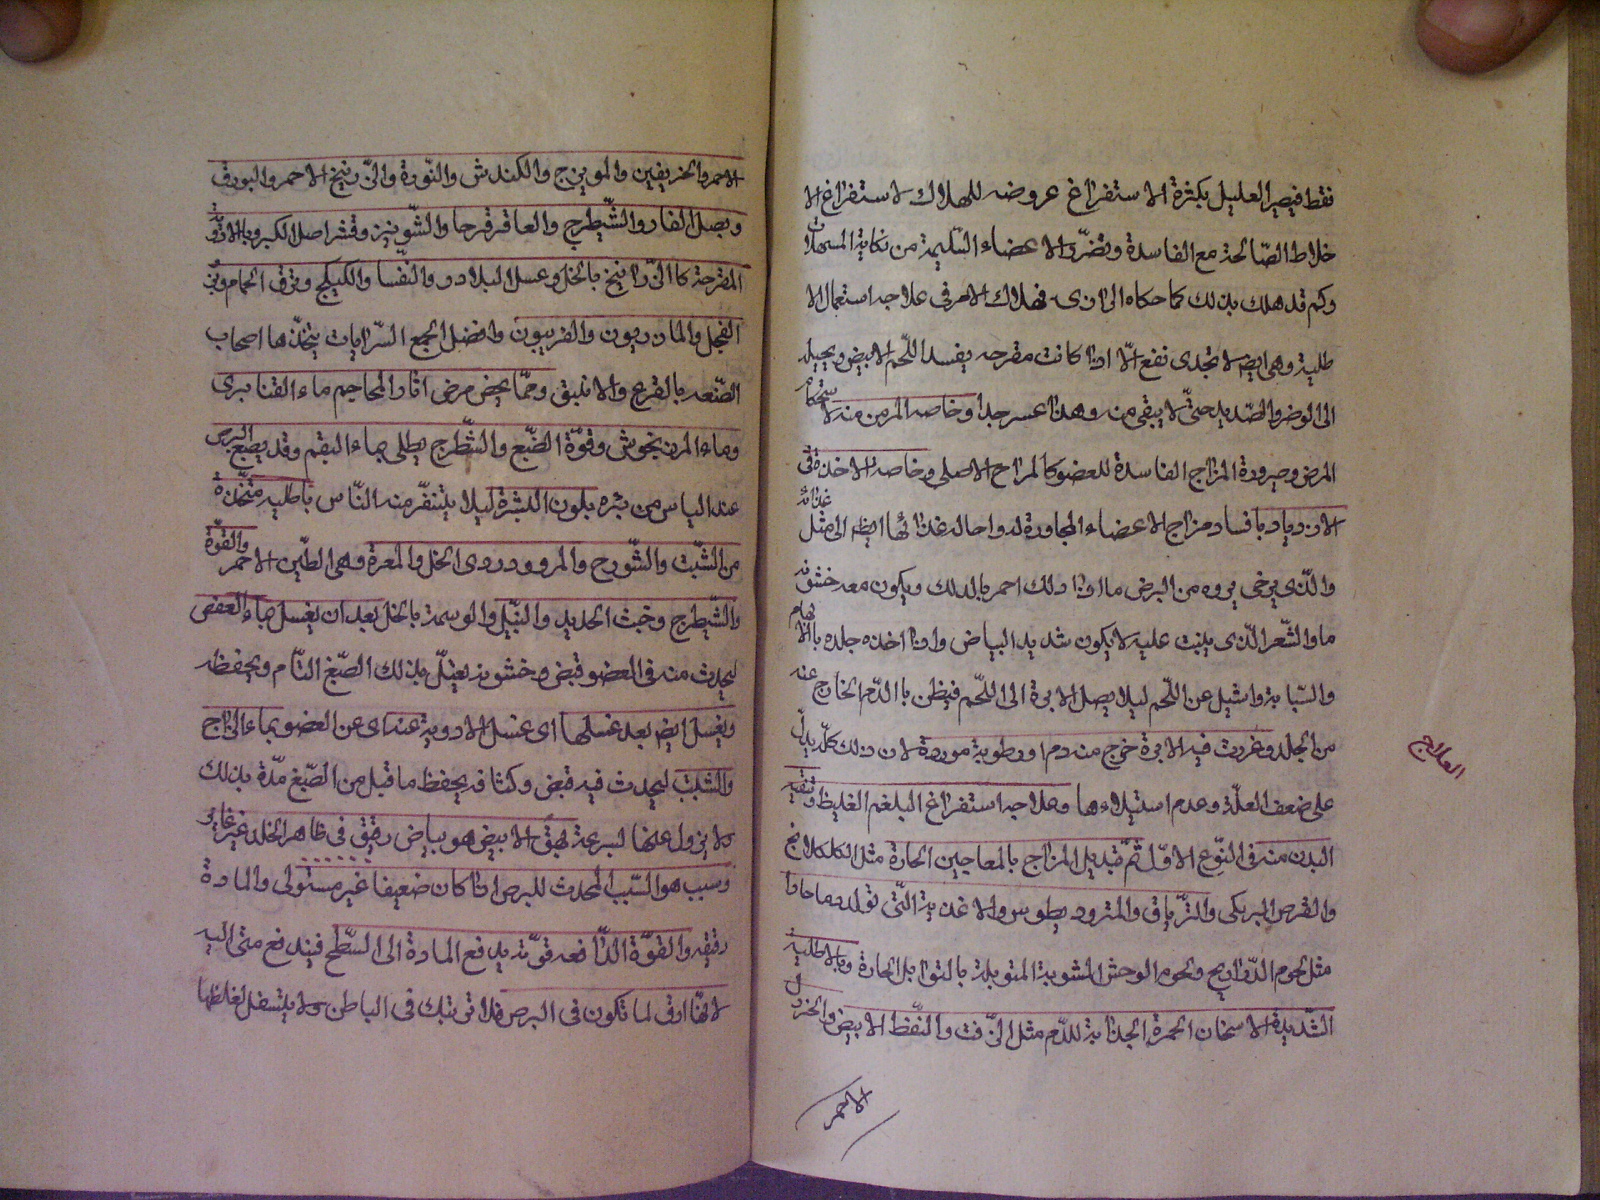 فقط فيصير العليل بكثرة الاستفراغ عروضه للهلاك لاستفراغ الا
خلاط الصّالحة مع الفاسدة وتضرّر الاعضاء السّليمة من نكاية المسهلات
وكم قد هلك بذلك كما حكاه الرازى فهلاك الامر فى علاجه استعمال الا
طلية وهى ايضا لا تجدى نفع الّا اذا كانت مقرحه يفسد اللّحم الابيض ويحيله
الى الوضر والصّديد حتّى لا يبقى منه وهذا عسر جدا وخاصه المزمن منه لاستحكام
المرض وصيرورة المزاج الفاسدة للعضو كالمزاج الاصلى وخاصه الاخذة فى
الازدياد بافساد مزاج الاعضاء المجاورة له واحاله غذائها ايضا الى مثل غذائه
والذّى يرجى بروه من البرص ما اذا دلك احمر بالدلك ويكون معه خشونة
ما والشّعر الذّى ينبت عليه لا يكون شديد البياض واذا اخذه جلده بالابهام
والسّبابة واشيل عن اللّحم ليلا يصل الابرة الى اللّحم فيظن با الدّم الخارج عنه
من الجلد وغرزت فيه الابرة خرج منه دم او رطوبة موردة لان ذلك كلّه يدلّ
على ضعف العلّة وعدم استيلاءها وعلاجه استفراغ البلغم الغليظ وتنقية
البدن منه فى النّوع الاوّل ثمّ تبديل المزاج بالمعاجين الحارة مثل الكلكلانج
والقرص البرمكى والترّياق والمترود يطوس والاغذية التّى تولد دما حادا
مثل لحوم الدّراريج ولحوم الوحش المشوية المتوبلة بالتوابل الحارة وبالاطلية
الشّديدة الاسخان المحمرة الجذابة للدّم مثل الزّفت والنّفط الابيض والخردل
الاحمر
العالج
الاحمر والخربقين والمويزج والكندش والنّورة والزّرنيخ الاحمر والبورق
وبصل الفار والشّيطرج والعاقرقرحا والشّونيز وقشر اصل الكبر وبالادوية
المقرحة كا الزّرانيخ بالخل وعسل البلادر والتّفسا والكبيكج وزرق الحمام وبزر
الفجل والمازريون والفربيون وافضل الجمع السّرابات يتخذّها اصحاب
الصّنعه بالقرع والانبيق وممّا يخص مرض اثار المحاجم ماء القنابرى
وماء المرزنجوش وفوّة الصّبع والشّطرج يطلى بماء البقم وقد يصبغ البرص
عند الياس من برءه بلون البشرة ليلا يتنفّر منه النّاس باطليه متّخذة
من الشّبّ والشّورج والمر ودردى الخل والمغرة وهى الطّين الاحمر والفوّة
والشّيطرج وخبث الحديد والنّيل والوسمة بالخل بعد ان يغسل بماء العفص
ليحدث منه فى العضو قبض وخشونة يقبل بذلك الصّبغ التّام ويحفظه
ويغسل ايضا بعد غسلها اى غسل الادوية عنه اى عن العضو بماء الزاج
والشّبّ ليحدث فيه قبض وكثافه يحفظ ما قبل من الصّبغ مدّة بذلك
ولا يزول عنها لسرعة بهق الابيض هو بياض رقيق فى ظاهر الجلد غير غاير
وسببه هو السّبب المحدث للبرص اذا كان ضعيفا غير مستولى والمادة
رقيقه والقوّة الدّافعه قوّيه يدفع المادة الى السّطح فيندفع متى اليه
لانّها ارق لما تكون فى البرص فلا ترتبك فى الباطن ولا يتسفل لغلظها